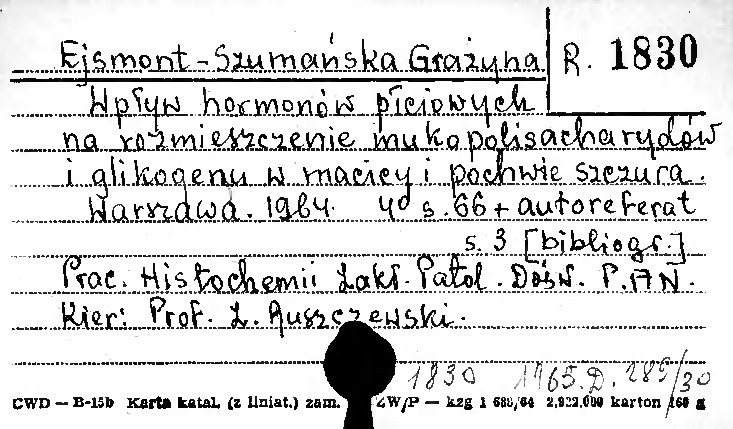 Ejsmont-Szumańska Grażyna R. 1830
Wpływ hormonów płciowych
na rozmieszczenie mukopolisacharydów
i glikogenu w macicy i pochwie szczura.
Warszawa. 1964. 4° s. 66 + autoreferat
s. 3 [bibliogr.]
Prac. Histochemii Zakł. Patol. Dośw. P.AN.
Kier: Prof. Z. Ruszczewski.
1830 1965.D. 285/30
CWD — B-15b Karta katal. (z liniat.) zam. ZW/P — kzg 1 688/64 2,922,000 karton 160 g